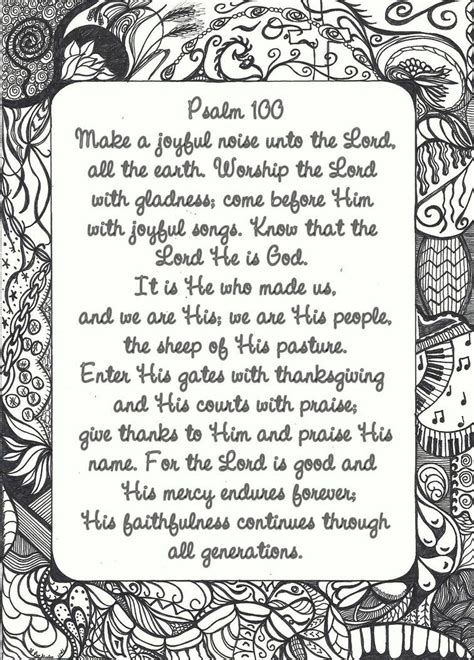 Psalm 100
Make a joyful noise unto the Lord,
all the earth. Worship the Lord
with gladness; come before Him
with joyful songs. Know that the
Lord He is God.
It is He who made us,
and we are His; we are His people,
the sheep of His pasture.
Enter His gates with thanksgiving
and His courts with praise;
give thanks to Him and praise His
name. For the Lord is good and
His mercy endures forever;
His faithfulness continues through
all generations.